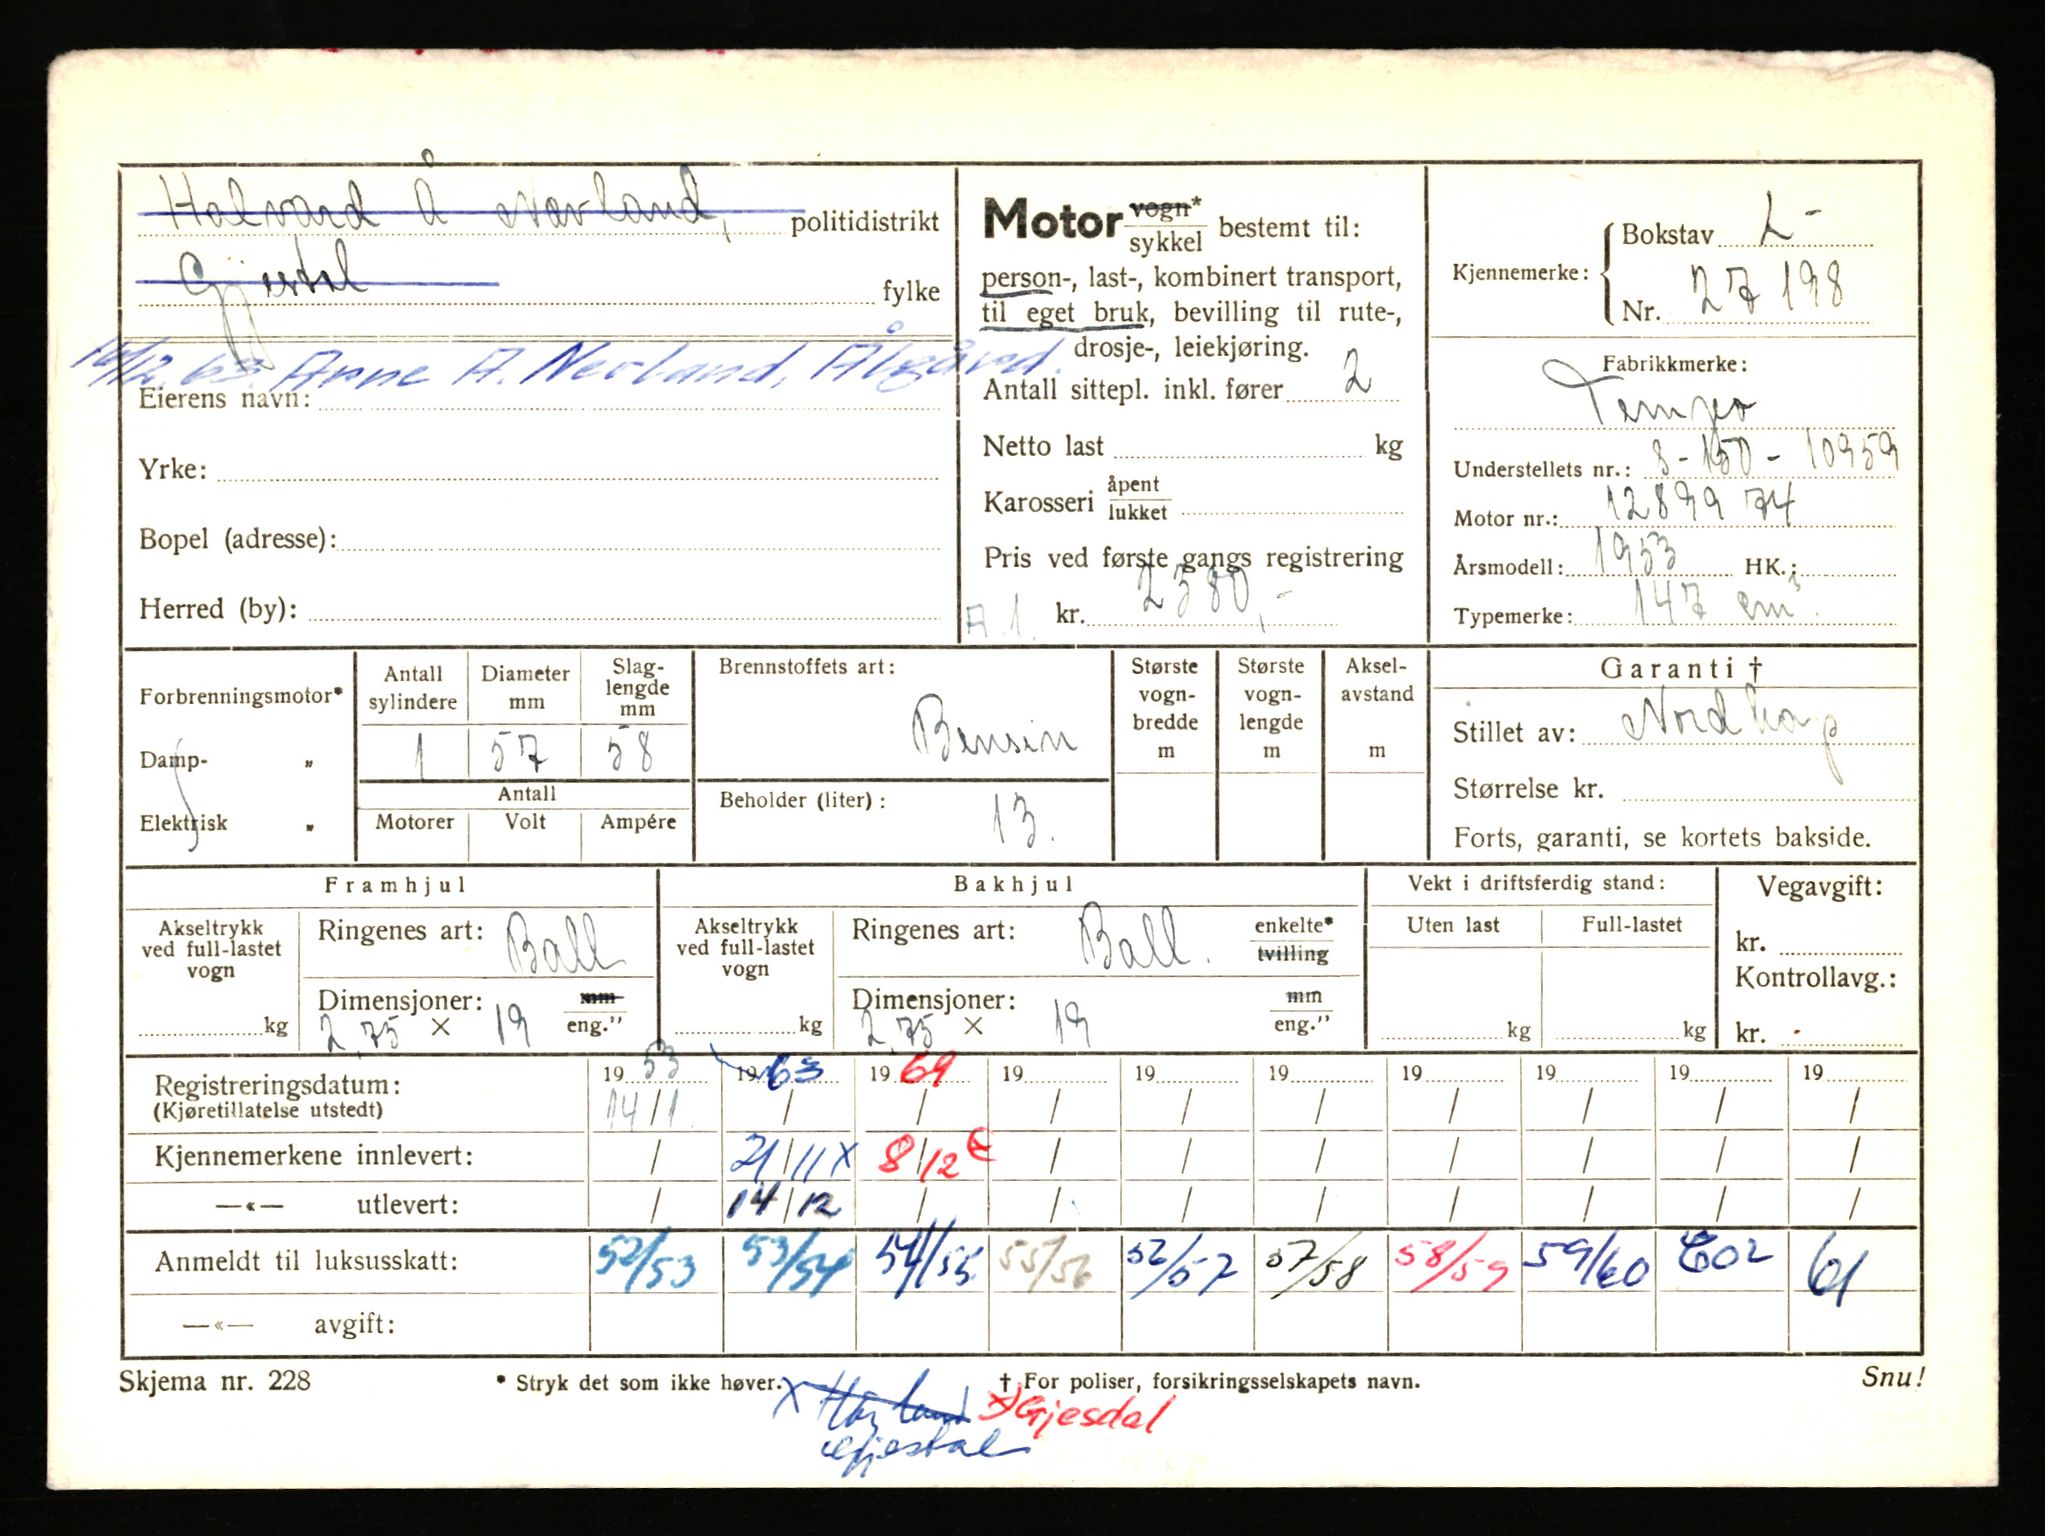 Halvard Å Nærland, politidistrikt
Gjestal fylke
14/12 63. Arne A. Nerland, Ålgård.
Eierens navn:
Yrke:
Bopel (adresse):
Herred (by):
Motor vogn* sykkel bestemt til:
person-, last-, kombinert transport,
til eget bruk, bevilling til rute-,
drosje-, leiekjøring.
Antall sittepl. inkl. fører 2
Netto last kg
Karosseri åpent lukket
Pris ved første gangs registrering
A.1. kr. 2380,-
Kjennemerke: Bokstav L-
Nr. 27198
Fabrikkmerke:
Tempo
Understellets nr.: S-150-10959
Motor nr.: 1289974
Årsmodell: 1953 HK.:
Typemerke: 147 cm³.
Forbrenningsmotor*
Damp- „
Elektrisk „
Antall sylindere 1
Diameter mm 57
Slaglengde mm 58
Antall
Motorer Volt Ampére
Brennstoffets art:
Bensin
Beholder (liter): 13.
Største vognbredde m
Største vognlengde m
Akselavstand m
Garanti †
Stillet av: Nordkap
Størrelse kr.
Forts, garanti, se kortets bakside.
Framhjul
Akseltrykk ved full-lastet vogn kg
Ringenes art: Ball
Dimensjoner: mm
2,75 × 19 eng."
Bakhjul
Akseltrykk ved full-lastet vogn kg
Ringenes art: Ball. enkelte* tvilling
Dimensjoner: mm
2,75 × 19 eng."
Vekt i driftsferdig stand:
Uten last Full-lastet
kg kg
Vegavgift:
kr.
Kontrollavg.:
kr.
Registreringsdatum: 1953 1963 1969 19 19 19 19 19 19 19
(Kjøretillatelse utstedt) 14/1 / / / / / / / / /
Kjennemerkene innlevert: / 21/11 x 8/12 / / / / / / /
—«— utlevert: / 14/12 / / / / / / / /
Anmeldt til luksusskatt: 52/53 53/54 54/55 55/56 56/57 57/58 58/59 59/60 602 61
—«— avgift:
Skjema nr. 228 * Stryk det som ikke høver. † For poliser, forsikringsselskapets navn. Snu!
x x) Gjesdal
Gjestal